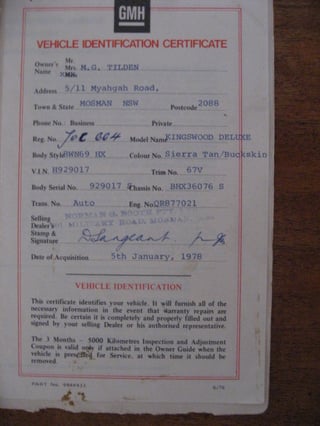 GMH
VEHICLE IDENTIFICATION CERTIFICATE
Owner's Mr.
Mrs. M.G. TILDEN
Name
Address 5/11 Myahgah Road,
Town & State MOSMAN NSW Postcode 2088
Phone No.: Business Private
Reg. No. JOC 004 Model Name KINGSWOOD DELUXE
Body Style 8WN69 HX Colour No. Sierra Tan/Buckskin
V.I.N. H929017 Trim No. 67V
Body Serial No. 929017 Chassis No. BHX36076 S
Trans. No. Auto Eng. No QR877021
Selling
Dealer's NORMAN G. BOOTH PTY
Stamp & MILITARY ROAD, MOSMAN,
Signature D Sargeant
Date of Acquisition 5th January, 1978
VEHICLE IDENTIFICATION
This certificate identifies your vehicle. It will furnish all of the
necessary information in the event that warranty repairs are
required. Be certain it is completely and properly filled out and
signed by your selling Dealer or his authorised representative.
The 3 Months - 5000 Kilometres Inspection and Adjustment
Coupon is valid only if attached in the Owner Guide when the
vehicle is presented for Service, at which time it should be
removed.
PART No.